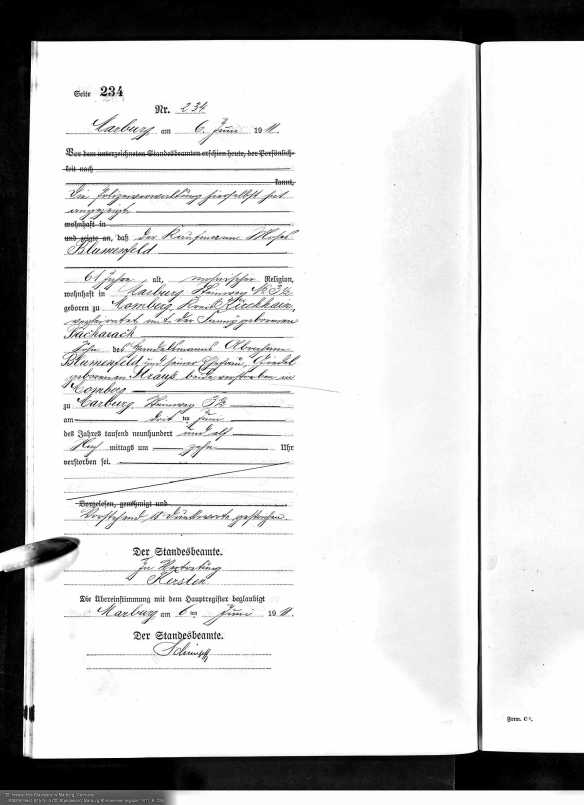 Seite 234
Nr. 234
Marburg am 6. Juni 1911.
Vor dem unterzeichneten Standesbeamten erschien heute, der Persönlich-
keit nach
kannt,
Die Polizeiverwaltung hierselbst hat
angezeigt,
wohnhaft in
und zeigte an, daß der Kaufmann Moses
Blumenfeld
61 Jahre alt, mosaischer Religion,
wohnhaft in Marburg,
geboren zu Momberg, Kreis Kirchhain,
verheiratet mit der Fanny geborenen
Bacharach
Sohn des Handelsmanns Abraham
Blumenfeld und seiner Ehefrau, Giedel
geborenen Strauß beide verstorben in
Momberg
zu Marburg,
am Juni
des Jahres tausend neunhundert und elf
mittags um zehn Uhr
verstorben sei.
Vorgelesen, genehmigt und
Vorstehend Druckworte gestrichen.
Der Standesbeamte.
In Vertretung
Kersten
Die Übereinstimmung mit dem Hauptregister beglaubigt
Marburg am 6ten Juni 1911.
Der Standesbeamte.
Form.